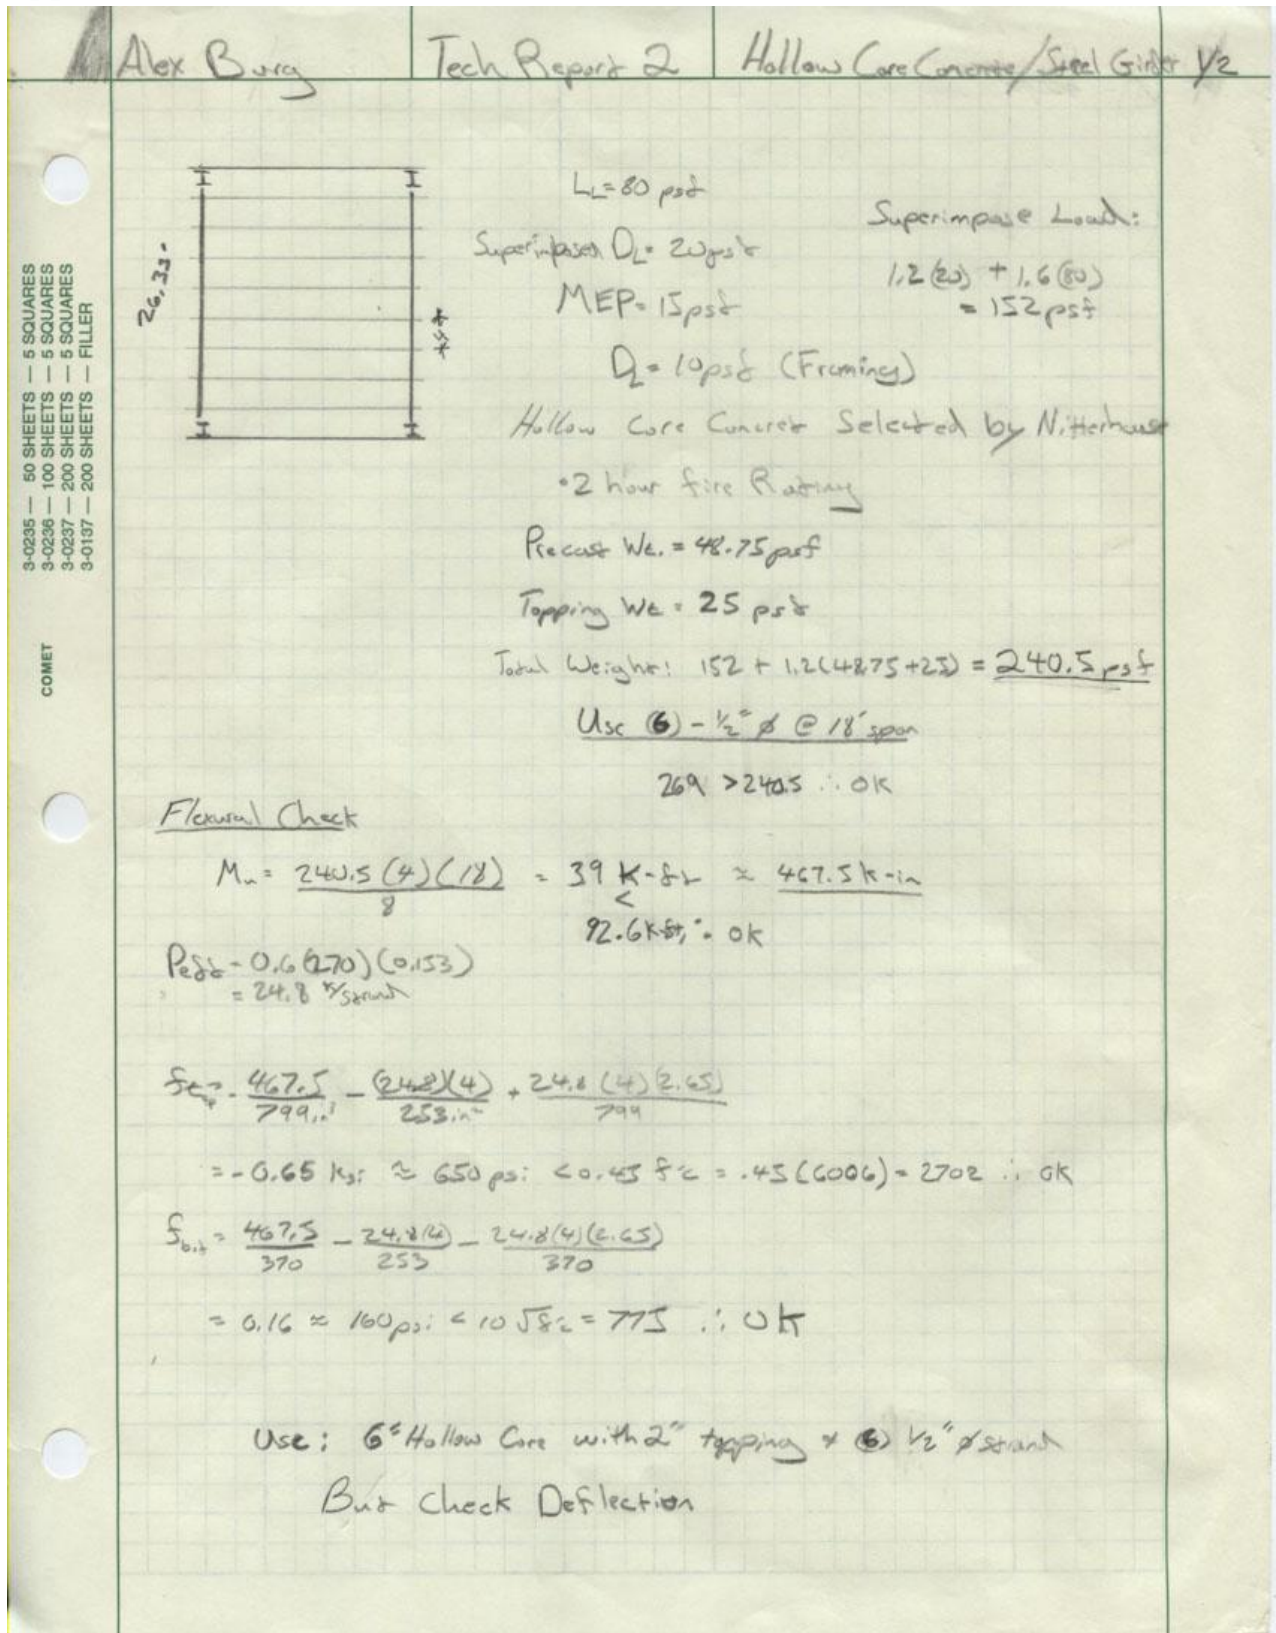 Alex Burg Tech Report 2 Hollow Core Concrete/Steel Girder 1/2
3-0235 — 50 SHEETS — 5 SQUARES
3-0236 — 100 SHEETS — 5 SQUARES
3-0237 — 200 SHEETS — 5 SQUARES
3-0137 — 200 SHEETS — FILLER
COMET
26.33'
LL=80 psf
Superimposed DL= 20psf
MEP= 15psf
DL= 10psf (Framing)
Superimpose Load:
1.2(20) + 1.6(80)
= 152psf
Hollow Core Concrete Selected by Nitterhouse
•2 hour fire Rating
Precast Wt. = 48.75psf
Topping Wt = 25 psf
Total Weight: 152 + 1.2(48.75+25) = 240.5psf
Use (6) - 1/2" ø @ 18' span
269 > 240.5 ∴ OK
Flexural Check
Mu= 240.5(4)(18) / 8 = 39 k-ft ≈ 467.5k-in
<
92.6k-ft, ∴ OK
Peff = 0.6(270)(0.153)
= 24.8 k/strand
467.5 / 799 - (24.8)(4) / 253in² + 24.8(4)(2.65) / 799
= -0.65 ksi ≈ 650psi < 0.45 f'c = .45(6006) = 2702 ∴ OK
fbot = 467.5 / 370 - 24.8(4) / 253 - 24.8(4)(2.65) / 370
= 0.16 ≈ 160psi < 10√f'c = 775 ∴ OK
Use: 6" Hollow Core with 2" topping + (6) 1/2" ø strand
But Check Deflection